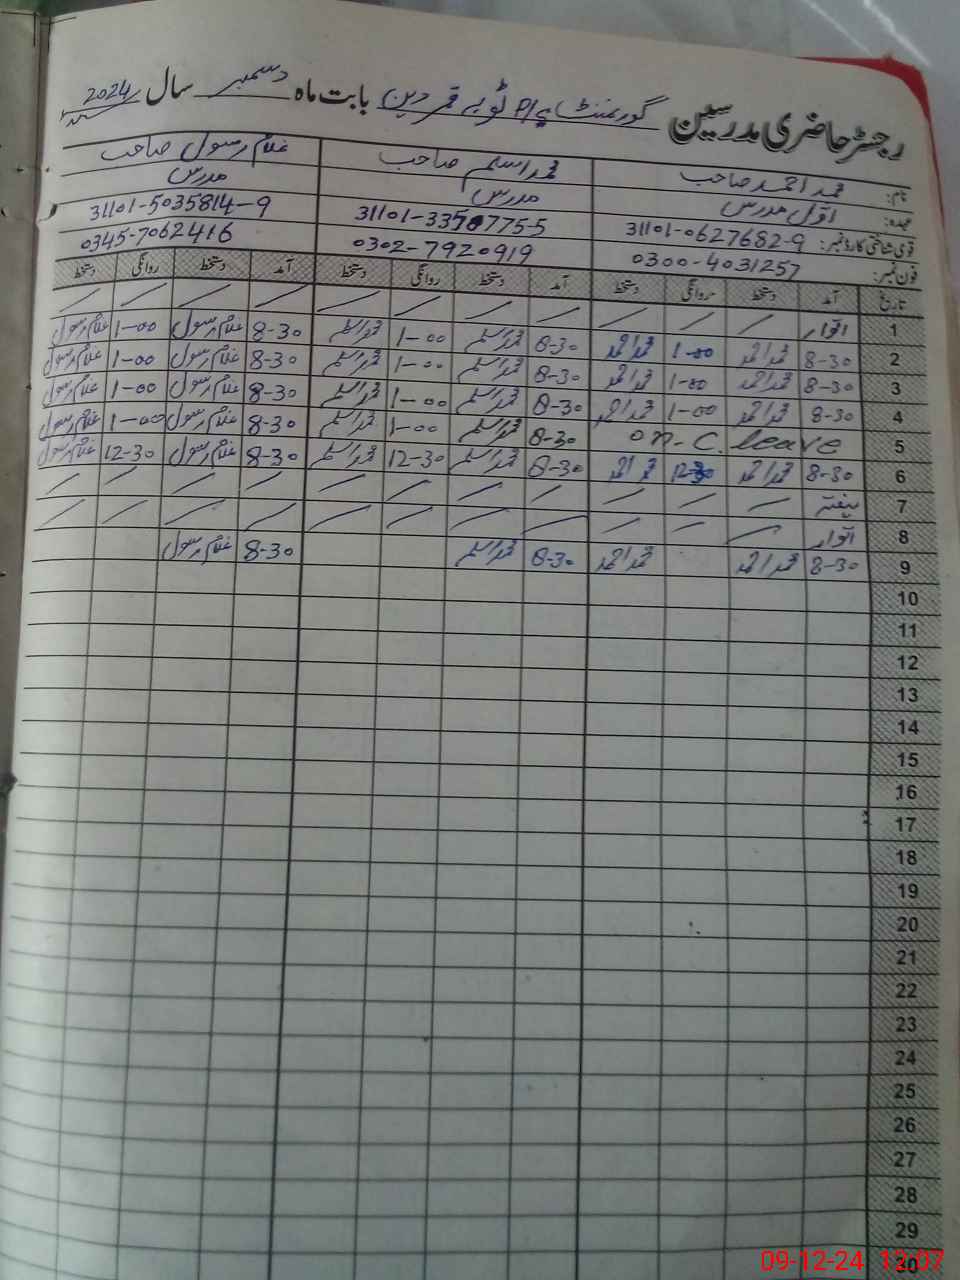 رجسٹر حاضری مدرسین گورنمنٹ پی/PI ٹوبہ قمر دین بابت ماہ دسمبر سال 2024
نام: محمد احمد صاحب محمد اسلم صاحب غلام رسول صاحب
عہدہ: اول مدرس مدرس مدرس
قومی شناختی کارڈ نمبر: 31101-0627682-9 31101-3350775-5 31101-5035814-9
فون نمبر: 0300-4031257 0302-7920919 0345-7062416
تاریخ آمد دستخط روانگی دستخط آمد دستخط روانگی دستخط آمد دستخط روانگی دستخط
1 اتوار
2 8-30 محمد احمد 1-00 محمد احمد 8-30 محمد اسلم 1-00 محمد اسلم 8-30 غلام رسول 1-00 غلام رسول
3 8-30 محمد احمد 1-00 محمد احمد 8-30 محمد اسلم 1-00 محمد اسلم 8-30 غلام رسول 1-00 غلام رسول
4 8-30 محمد احمد 1-00 محمد احمد 8-30 محمد اسلم 1-00 محمد اسلم 8-30 غلام رسول 1-00 غلام رسول
5 on C. leave 8-30 محمد اسلم 1-00 محمد اسلم 8-30 غلام رسول 1-00 غلام رسول
6 8-30 محمد احمد 12-30 محمد احمد 8-30 محمد اسلم 12-30 محمد اسلم 8-30 غلام رسول 12-30 غلام رسول
7 ہفتہ
8 اتوار
9 8-30 محمد احمد محمد احمد 8-30 محمد اسلم 8-30 غلام رسول
10
11
12
13
14
15
16
17
18
19
20
21
22
23
24
25
26
27
28
29
30
09-12-24 12:07